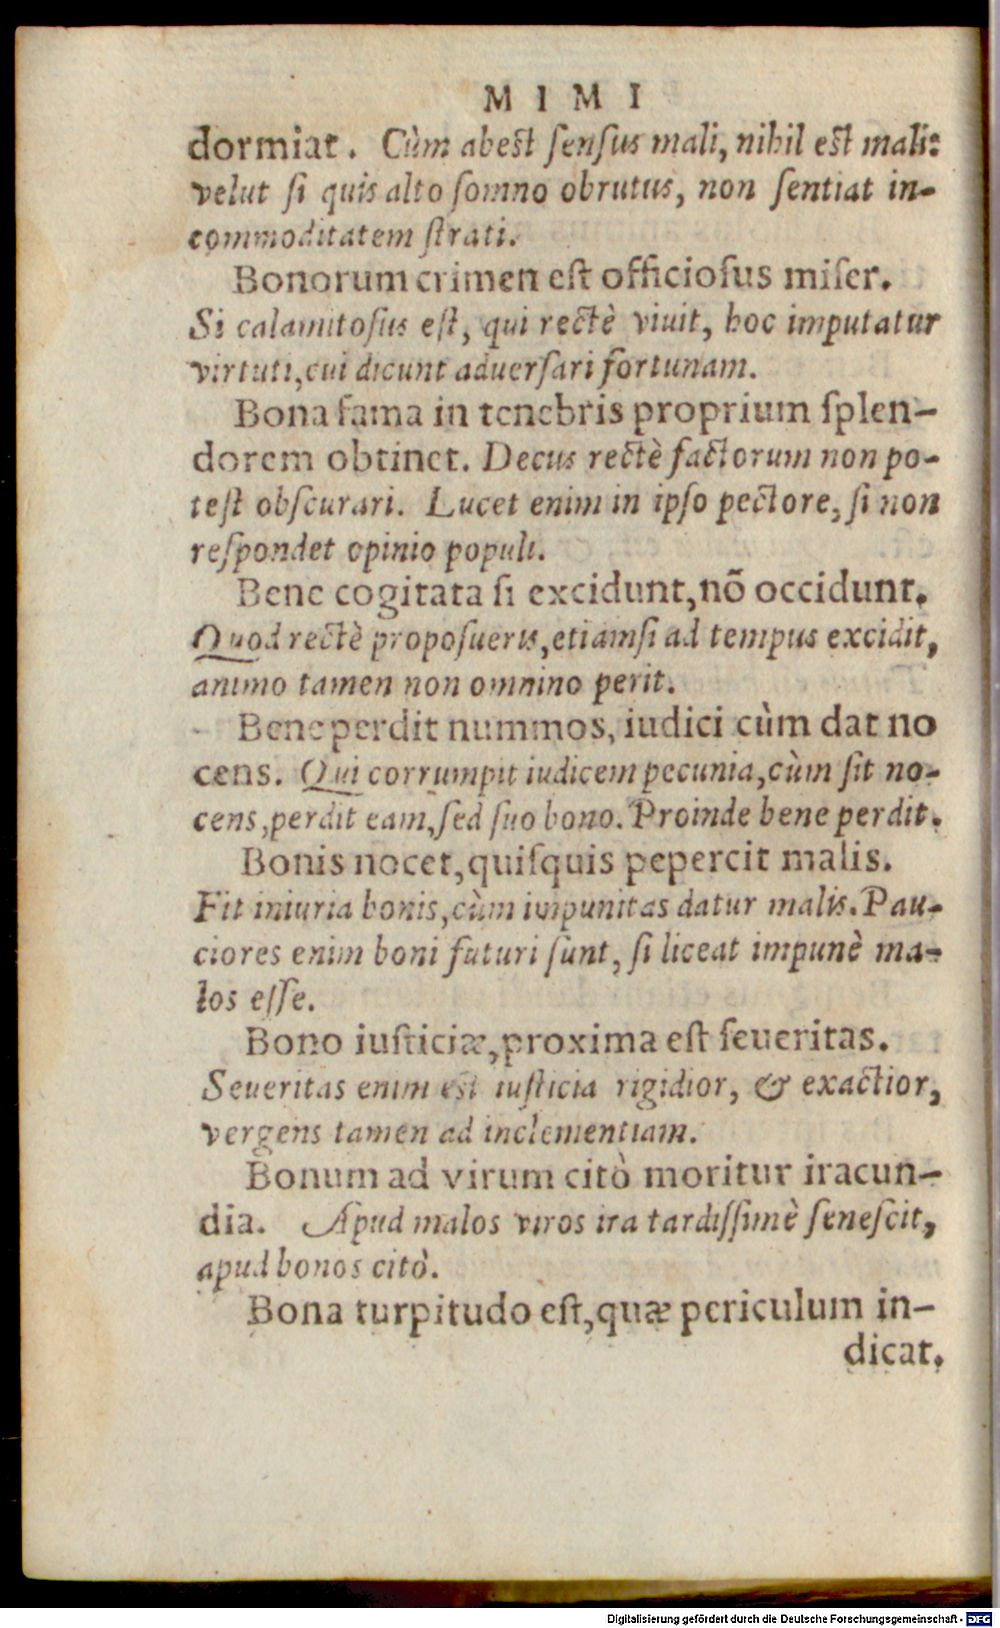 MIMI
dormiat. Cùm abest sensus mali, nihil est mali:
velut si quis alto somno obrutus, non sentiat in-
commoditatem strati.
Bonorum crimen est officiosus miser.
Si calamitosus est, qui rectè viuit, hoc imputatur
virtuti, cui dicunt aduersari fortunam.
Bona fama in tenebris proprium splen-
dorem obtinet. Decus rectè factorum non po-
test obscurari. Lucet enim in ipso pectore, si non
respondet opinio populi.
Bene cogitata si excidunt, nõ occidunt.
Quod rectè proposueris, etiamsi ad tempus excidit,
animo tamen non omnino perit.
Bene perdit nummos, iudici cùm dat no
cens. Qui corrumpit iudicem pecunia, cùm sit no-
cens, perdit eam, sed suo bono. Proinde bene perdit.
Bonis nocet, quisquis pepercit malis.
Fit iniuria bonis, cùm impunitas datur malis. Pau-
ciores enim boni futuri sunt, si liceat impunè ma-
los esse.
Bono iusticiæ, proxima est seueritas.
Seueritas enim est iusticia rigidior, & exactior,
vergens tamen ad inclementiam.
Bonum ad virum citò moritur iracun-
dia. Apud malos viros ira tardissimè senescit,
apud bonos citò.
Bona turpitudo est, quæ periculum in-
dicat.
Digitalisierung gefördert durch die Deutsche Forschungsgemeinschaft - DFG